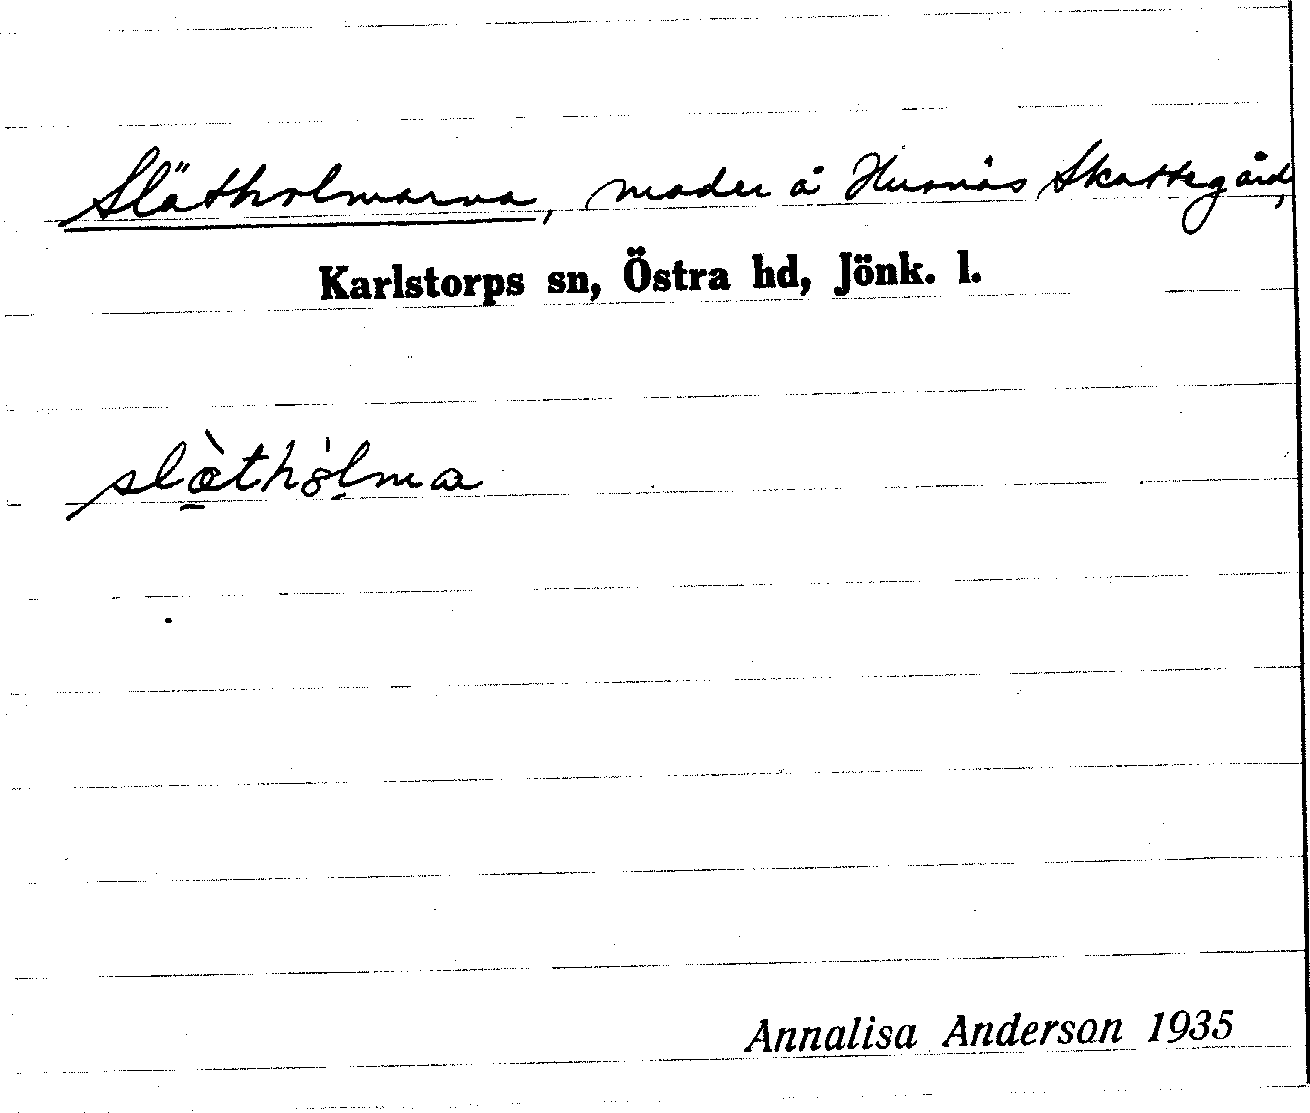 Slätholmarna, mader å Husnäs Skattegård,
Karlstorps sn, Östra hd, Jönk. l.
slæ̀thòlma
Annalisa Anderson 1935